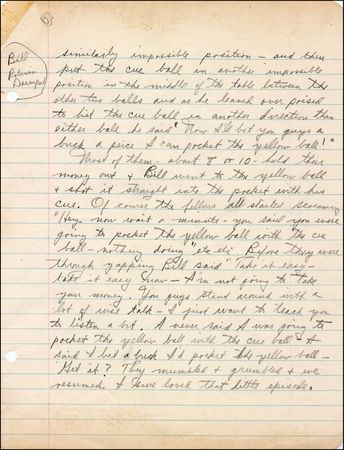 Bill
similarly impossible position - and then
put the cue ball in another impossible
position in the middle of the table between the
other two balls and as he leaned over poised
to hit the cue ball in another direction than
either ball he said "Now I'll bet you guys a
buck a piece I can pocket the yellow ball!"
Most of them - about 8 or 10 - held their
money out & Bill went to the yellow ball
& shot it straight into the pocket with his
cue. Of course the fellows all started screaming
"Hey now wait a minute - you said you were
going to pocket the yellow ball with the cue
ball - nothing doing" etc etc. Before they were
through yapping Bill said "Take it easy -
take it easy now - I'm not going to take
your money. You guys stand around with a
lot of wise talk - I just want to teach you
to listen a bit. I never said I was going to
pocket the yellow ball with the cue ball - I
said I bet a buck I'd pocket the yellow ball -
Get it? They mumbled & grumbled & we
resumed. & I loved that little episode.